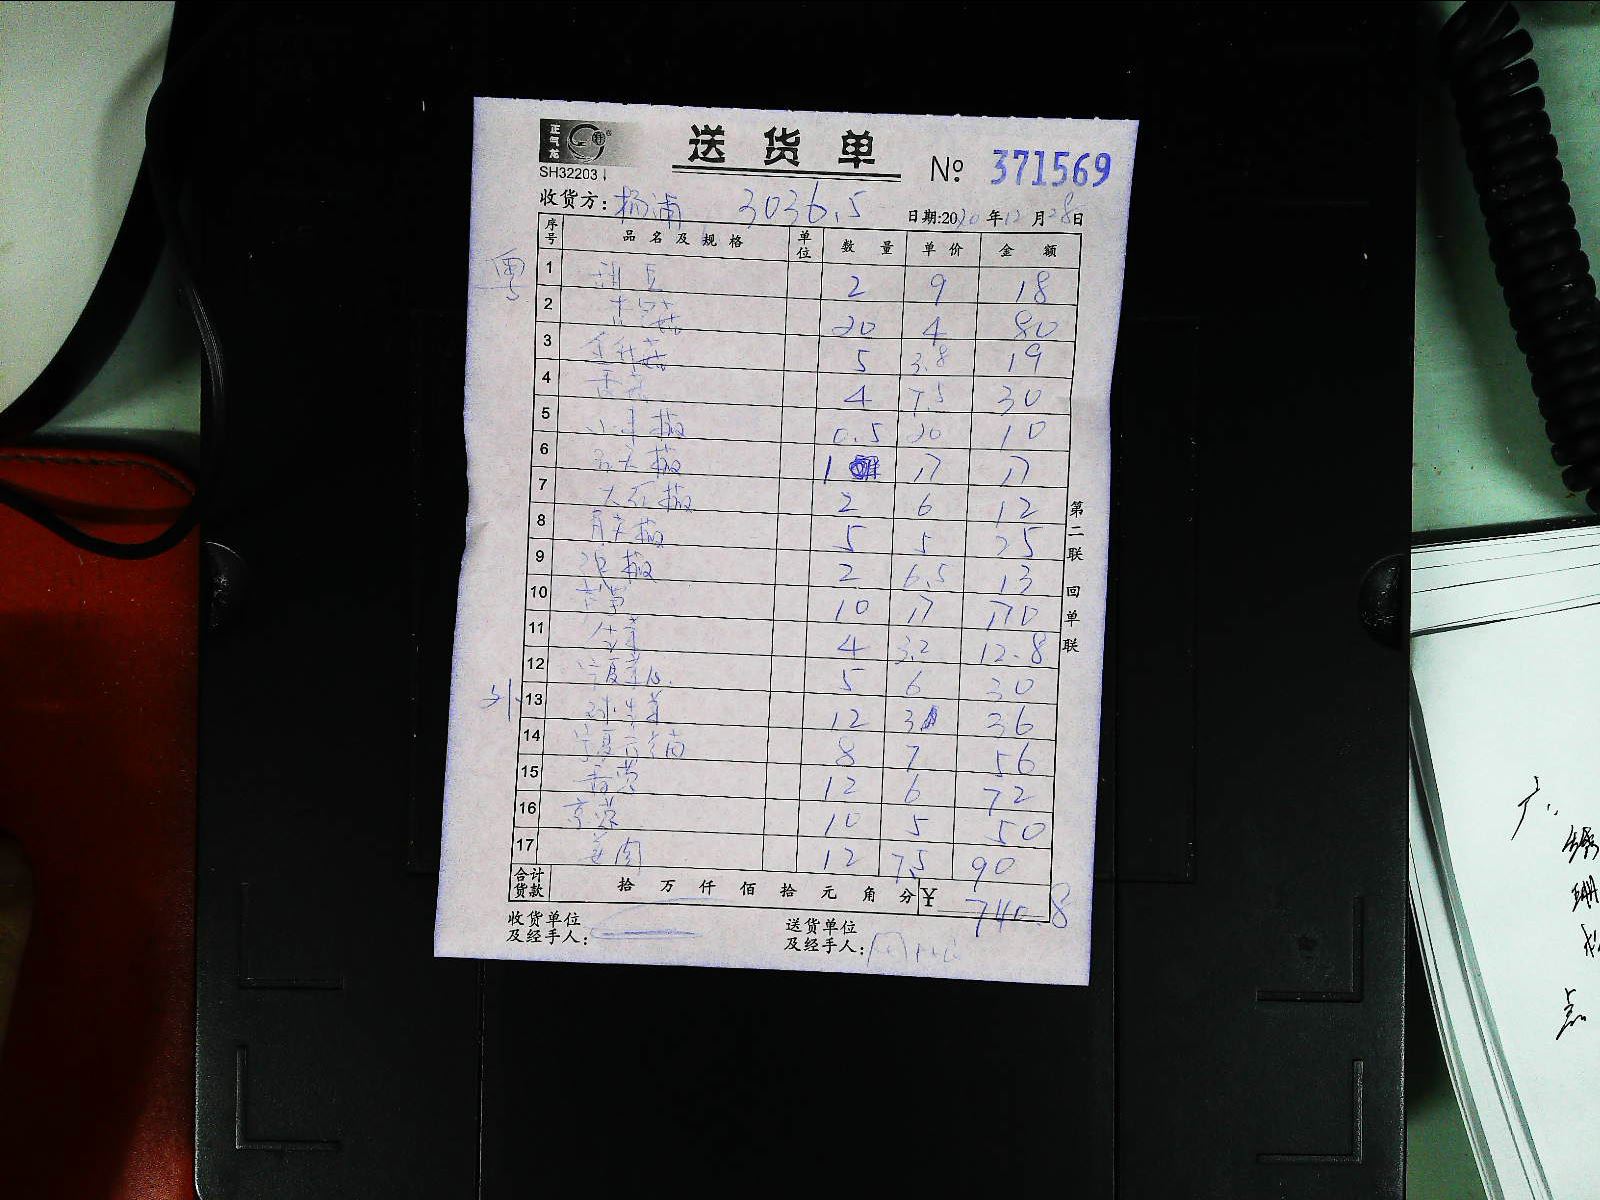 正气龙
送货单
SH32203
No 371569
收货方：杨浦 3036.5 日期:2020年12月28日
序号 品名及规格 单位 数量 单价 金额
粤
1 2 9 18
2 20 4 80
3 金针菇 5 3.8 19
4 香菇 4 7.5 30
5 小米椒 0.5 20 10
6 1 17 17
7 大红椒 2 6 12
8 青尖椒 5 5 25
9 2 6.5 13
10 10 17 170
11 4 3.2 12.8
12 宁夏菜心 5 6 30
外
13 球生菜 12 3 36
14 宁夏 8 7 56
15 12 6 72
16 京葱 10 5 50
17 12 7.5 90
合计货款 拾万仟佰拾元角分 ¥ 740.8
收货单位及经手人：
送货单位及经手人：
第二联 回单联